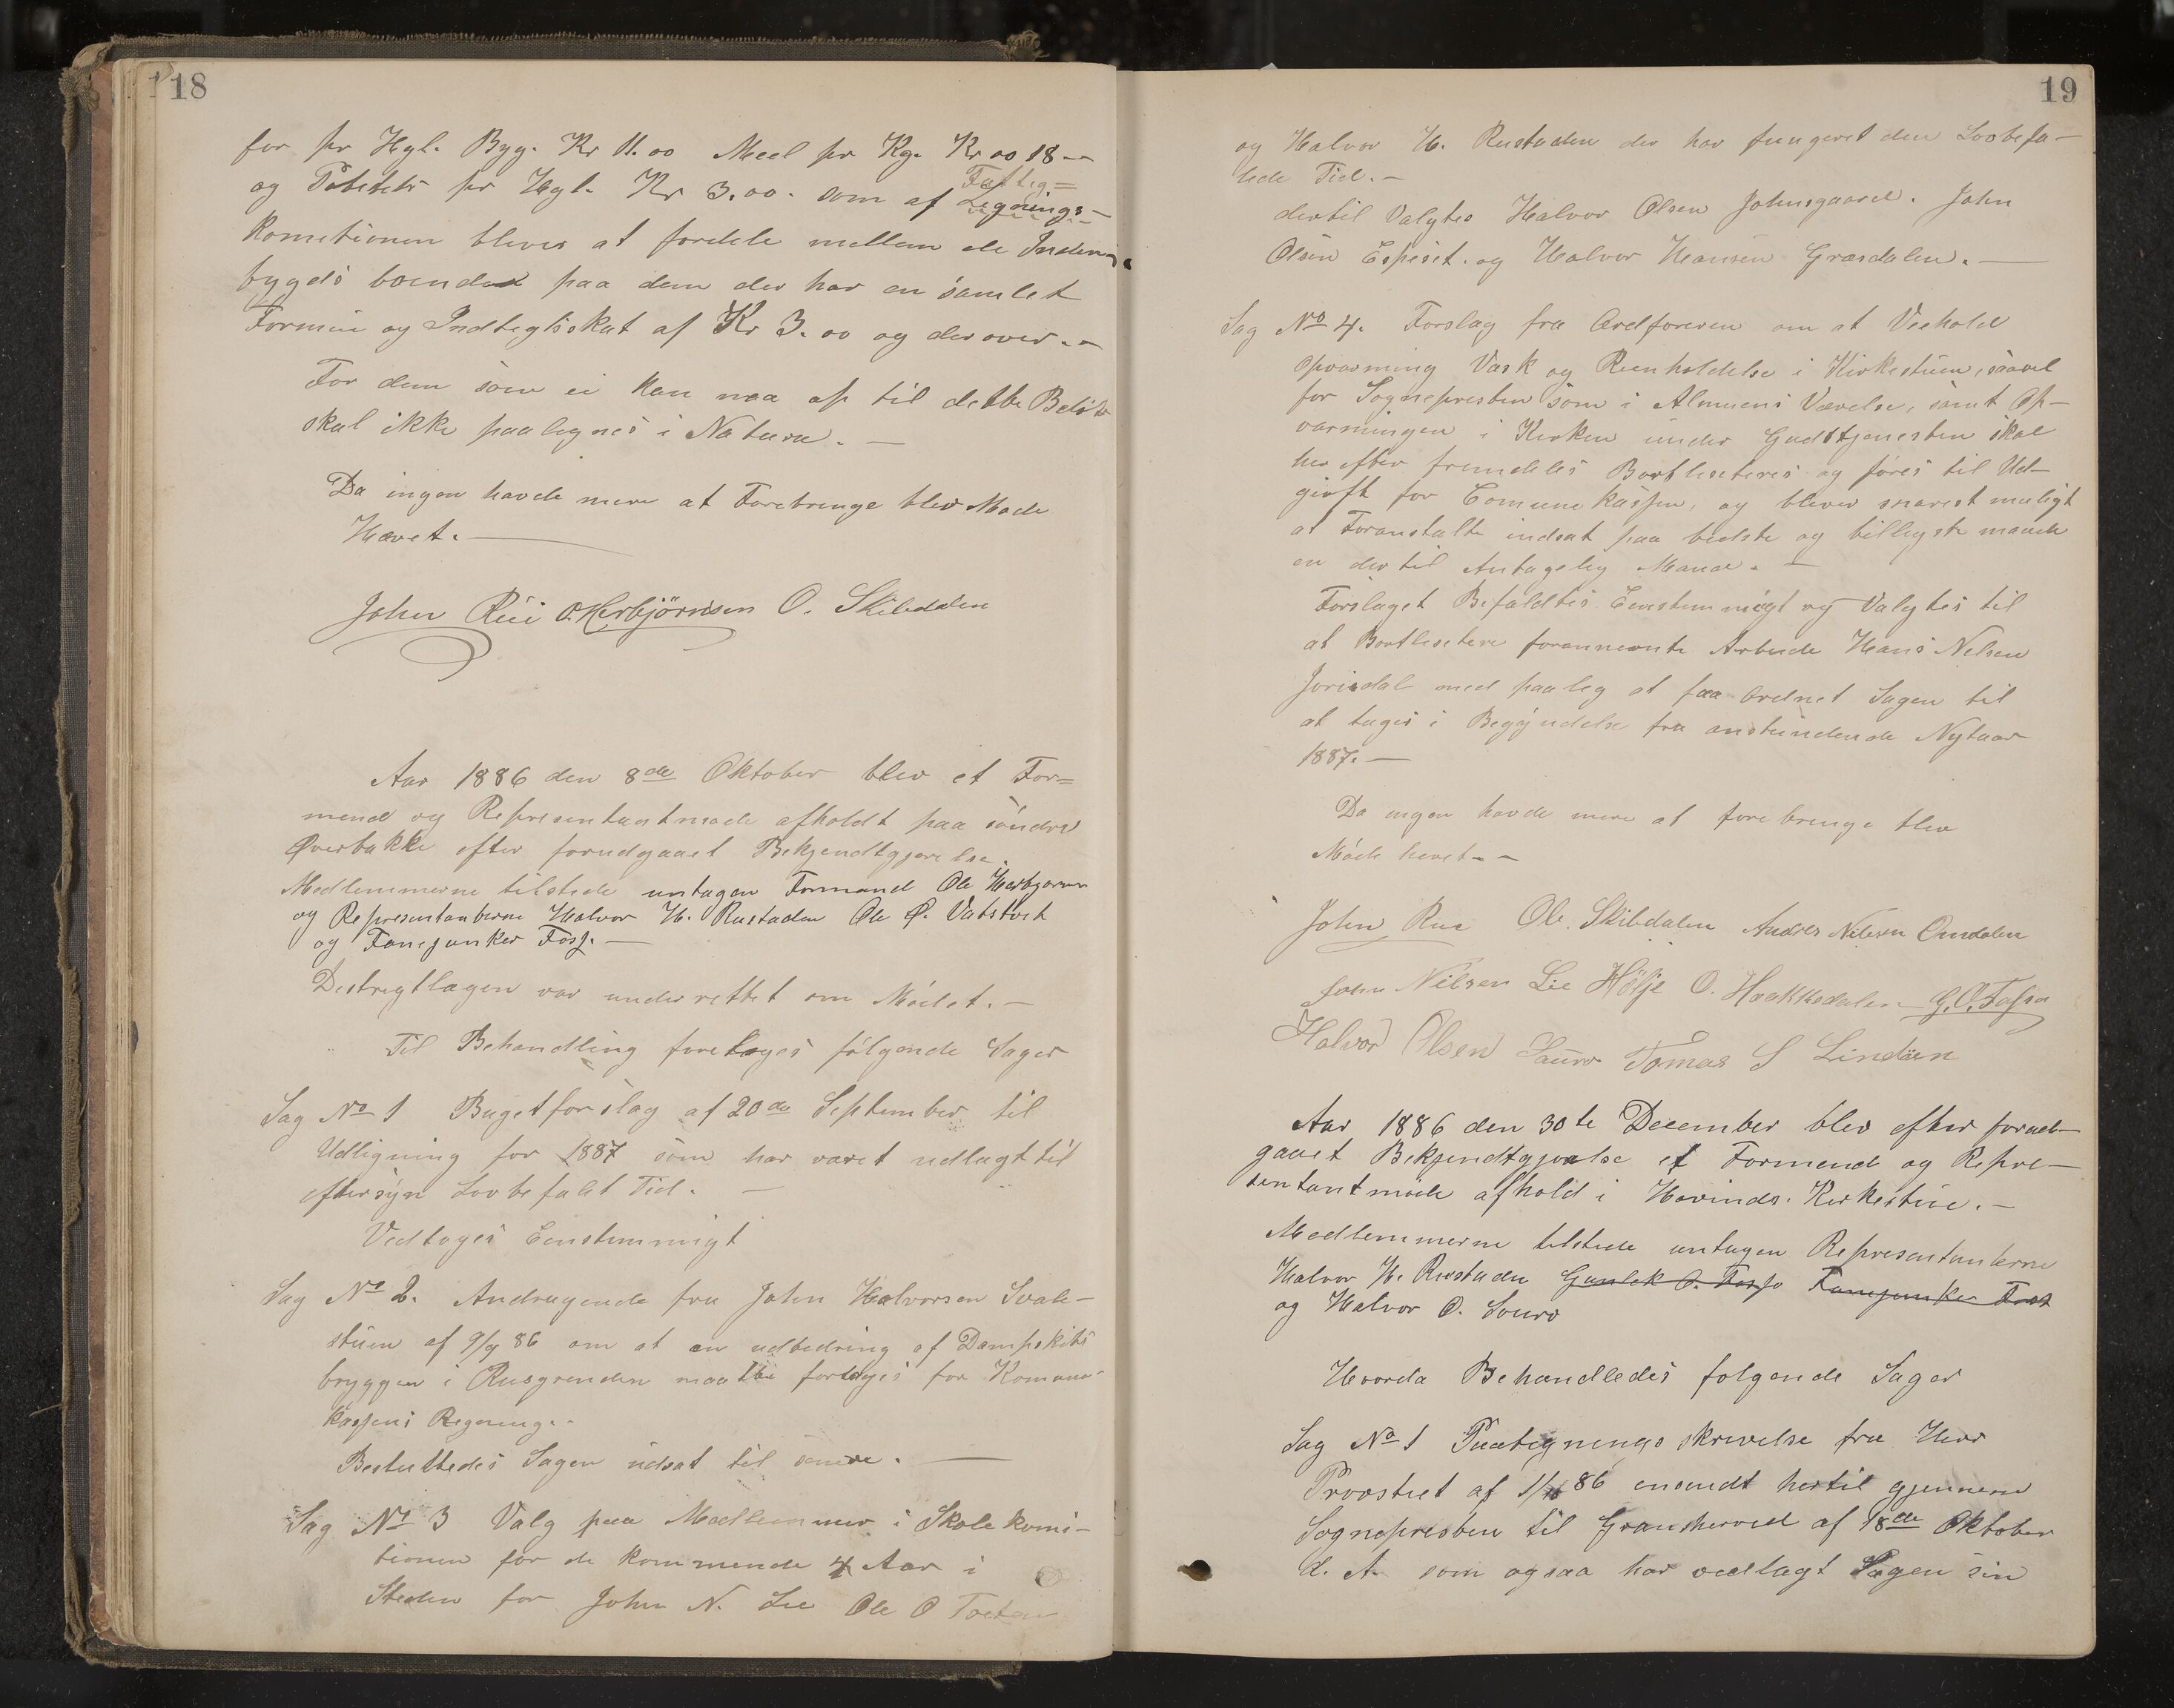 18
for pr Hgl. Byg. Kr 11.00 Meel pr Kg. Kr 00 18 —
Fattig=
og Potetets pr Hgl. Kr 3.00. som af Lignings-
Komitionen blives at fordele mellem de Inden-
bygds boende paa dem der har en samlet
Formue og Indtegtsskat af Kr 3.00 og derover. —
For dem som ei kan naa op til dette Beløb
skal ikke paalegnes i Natura. —
Da ingen havde mere at Forebringe blev Møde
Hævet. —
John Rui O. Herbjörnsen O. Skibdalen
Aar 1886 den 8de Oktober blev et For=
mend og Representantmøde afholdt paa søndre
Øverbakke efter forudgaaet Bekjendtgjørelse.
Medlemmerne tilstede untagen Formand Ole Herbjørnsen
og Representanterne Halvor H. Rustaden Ole O. Vatstvet
og Fanejunker Fosz. —
Destrigtlægen var underrettet om Mødet. —
Til Behandling foretoges følgende Sager
Sag No 1 Bugetforslag af 20de September til
Udligning for 1887 som har været udlagt til
eftersyn Lovbefalt Tid. —
Vedtoges Eenstemmigt
Sag No 2. Andragende fra John Halvorsen Svale-
stuen af 9/9 86 om at en udbedring af Dampskibs
bryggen i Rusgrenden maatte fortages for Komune-
kassens Regning. -
Besluttedes Sagen udsat til senere. —
Sag No 3 Valg paa Medlemmer i Skolekomi-
tionen for de kommende 4 Aar i
Steden for John N. Lie Ole O
19
og Halvor H. Rustaden der har fungeret den Lovbefa-
lede Tid. —
dertil Valgtes Halvor Olsen Johnsgaard. John
Olsen Espeset. og Halvor Hansen Grasdalen. —
Sag No 4. Forslag fra Ordføreren om at Veehold
Opvarming Vask og Reenholdelse i Kirkestuen, saavel
for Sognepresten som i Almuens Værelse, samt Op-
varmingen i Kirken under Gudstjenesten skal
her efter fremdeles Bortliseteres og føres til Ud-
givft for Comunekassen, og bliver snarest muligt
at Foranstalte indsat paa bedste og billigste maade
en dertil Antagelig Mand. —
Forslaget Bifaldtes Eenstemmigt og Valgtes til
at Bortlisetere forannevnte Arbeide Hans Nelsen
Jorisdal med paaleg at faa Ordnet Sagen til
at tages i Begyndelse fra anstundende Nytaar
1887. —
Da ingen havde mere at forebringe blev
Møde hevet. —
John Rui Ole Skibdalen Anders Nilsen Omdalen
John Nilsen Lie Hölje O. Haakkedalen G. O. Fossa
Halvor Olsen Sauro Tomas S Lindaen
Aar 1886 den 30te December blev efter forud-
gaaet Bekjendtgjørelse et Formend og Repre-
sentantmøde afhold i Hovinds Kirkestue. —
Medlemmerne tilstede untagen Representanterne
Halvor H. Rustaden Gunlek O. Fossjo Fanejunker Fosz
og Halvor O. Souro
Hvorda Behandledes følgende Sager
Sag No 1 Paategnings skrivelse fra Herr
Provstiet af 1/10 86 ensendt hertil gjennem
Sognepresten til Gransherred af 18de Oktober
d. A. som ogsaa har vedlagt Sagen sin